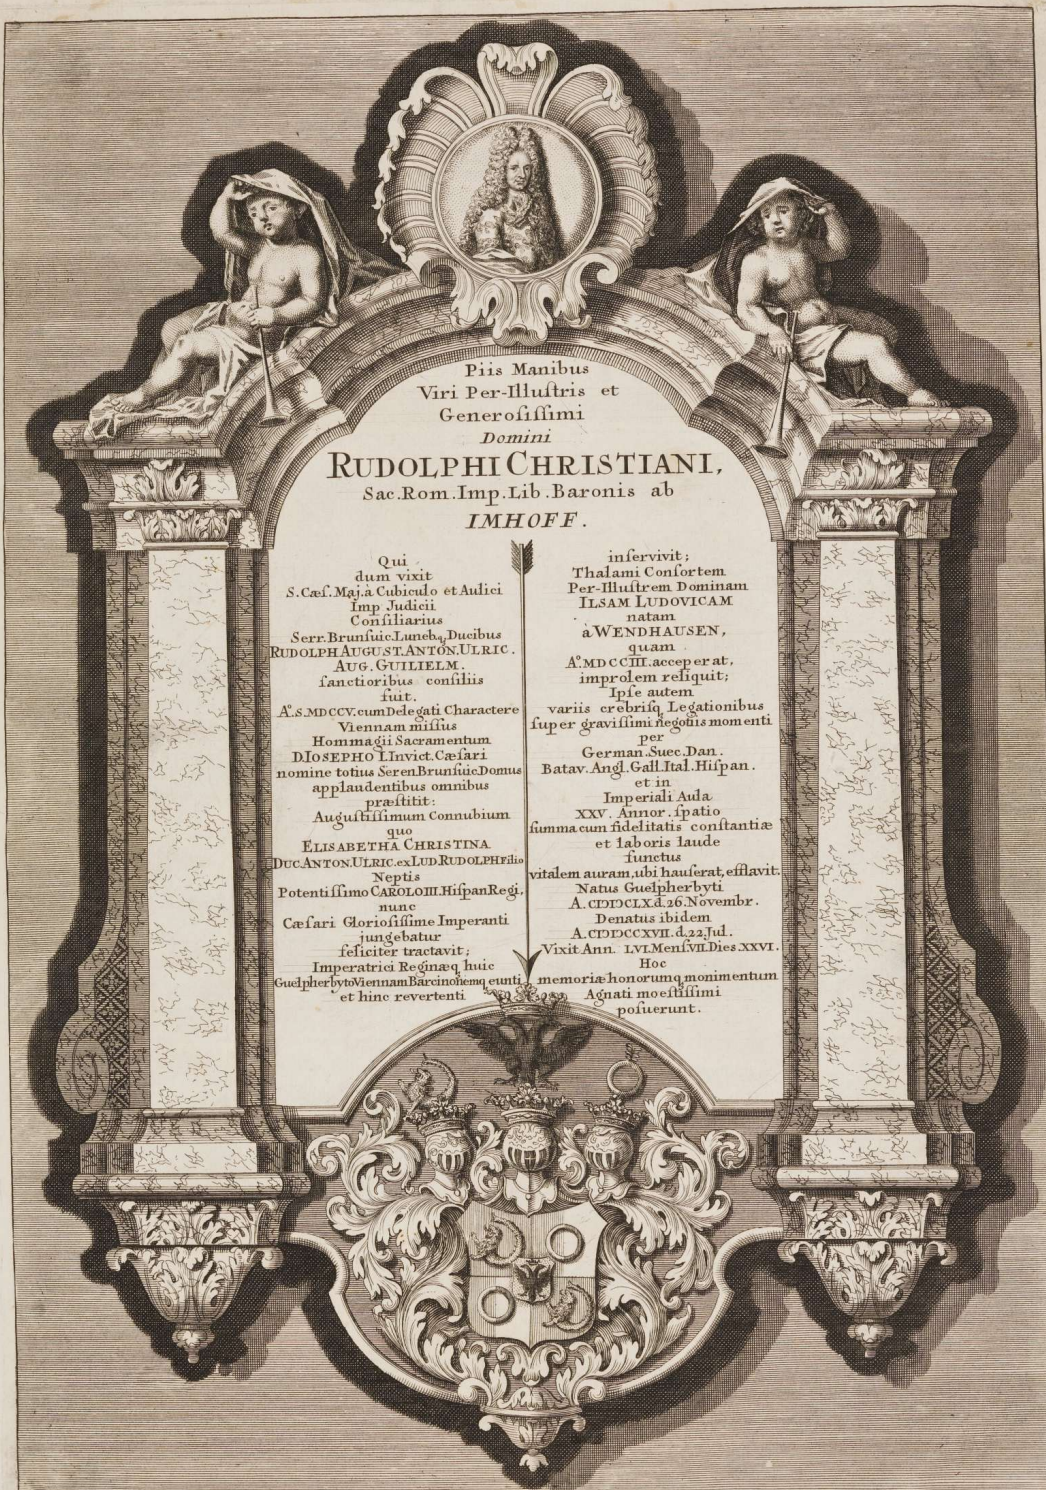 Piis Manibus
Viri Per-Illuſtris et
Generoſiſſimi
Domini
RUDOLPHI CHRISTIANI,
Sac. Rom. Imp. Lib. Baronis ab
IMHOFF.
Qui
dum vixit
S. Cæſ. Maj. à Cubiculo et Aulici
Imp Judicii
Conſiliarius
Serr. Brunſuic. Luneb q. Ducibus
RUDOLPH AUGUST. ANTON. ULRIC.
AUG. GUILIELM.
ſanctioribus conſiliis
fuit.
Aº. S. MDCCV. cum Delegati Charactere
Viennam miſſus
Hommagii Sacramentum
D. IOSEPHO I. Invict. Cæſari
nomine totius Seren Brunſuic Domus
applaudentibus omnibus
præſtitit:
Auguſtiſſimum Connubium
quo
ELISABETHA CHRISTINA
DUC. ANTON. ULRIC. ex LUD. RUDOLPH Filio
Neptis
Potentiſſimo CAROLO III. Hiſpan Regi,
nunc
Cæſari Glorioſiſſime Imperanti
jungebatur
feliciter tractavit;
Imperatrici Reginæq huic
Guelpherbyto Viennam Barcinonemq eunti
et hinc revertenti
inſervivit;
Thalami Conſortem
Per-Illuſtrem Dominam
ILSAM LUDOVICAM
natam
à WENDHAUSEN,
quam
Aº. MDCCIII. acceperat,
improlem reliquit;
Ipſe autem
variis crebriſq Legationibus
ſuper graviſſimi negotiis momenti
per
German. Suec. Dan.
Batav. Angl. Gall. Ital. Hiſpan.
et in
Imperiali Aula
XXV. Annor. ſpatio
ſumma cum fidelitatis conſtantiæ
et laboris laude
functus
vitalem auram, ubi hauſerat, efflavit.
Natus Guelpherbyti
A. CIↃIↃCLX. d. 26. Novembr.
Denatus ibidem
A. CIↃIↃCCXVII. d. 22. Jul.
Vixit Ann. LVI. Menſ. VII. Dies. XXVI.
Hoc
memoriæ honorumq monimentum
Agnati moeſtiſſimi
poſuerunt.